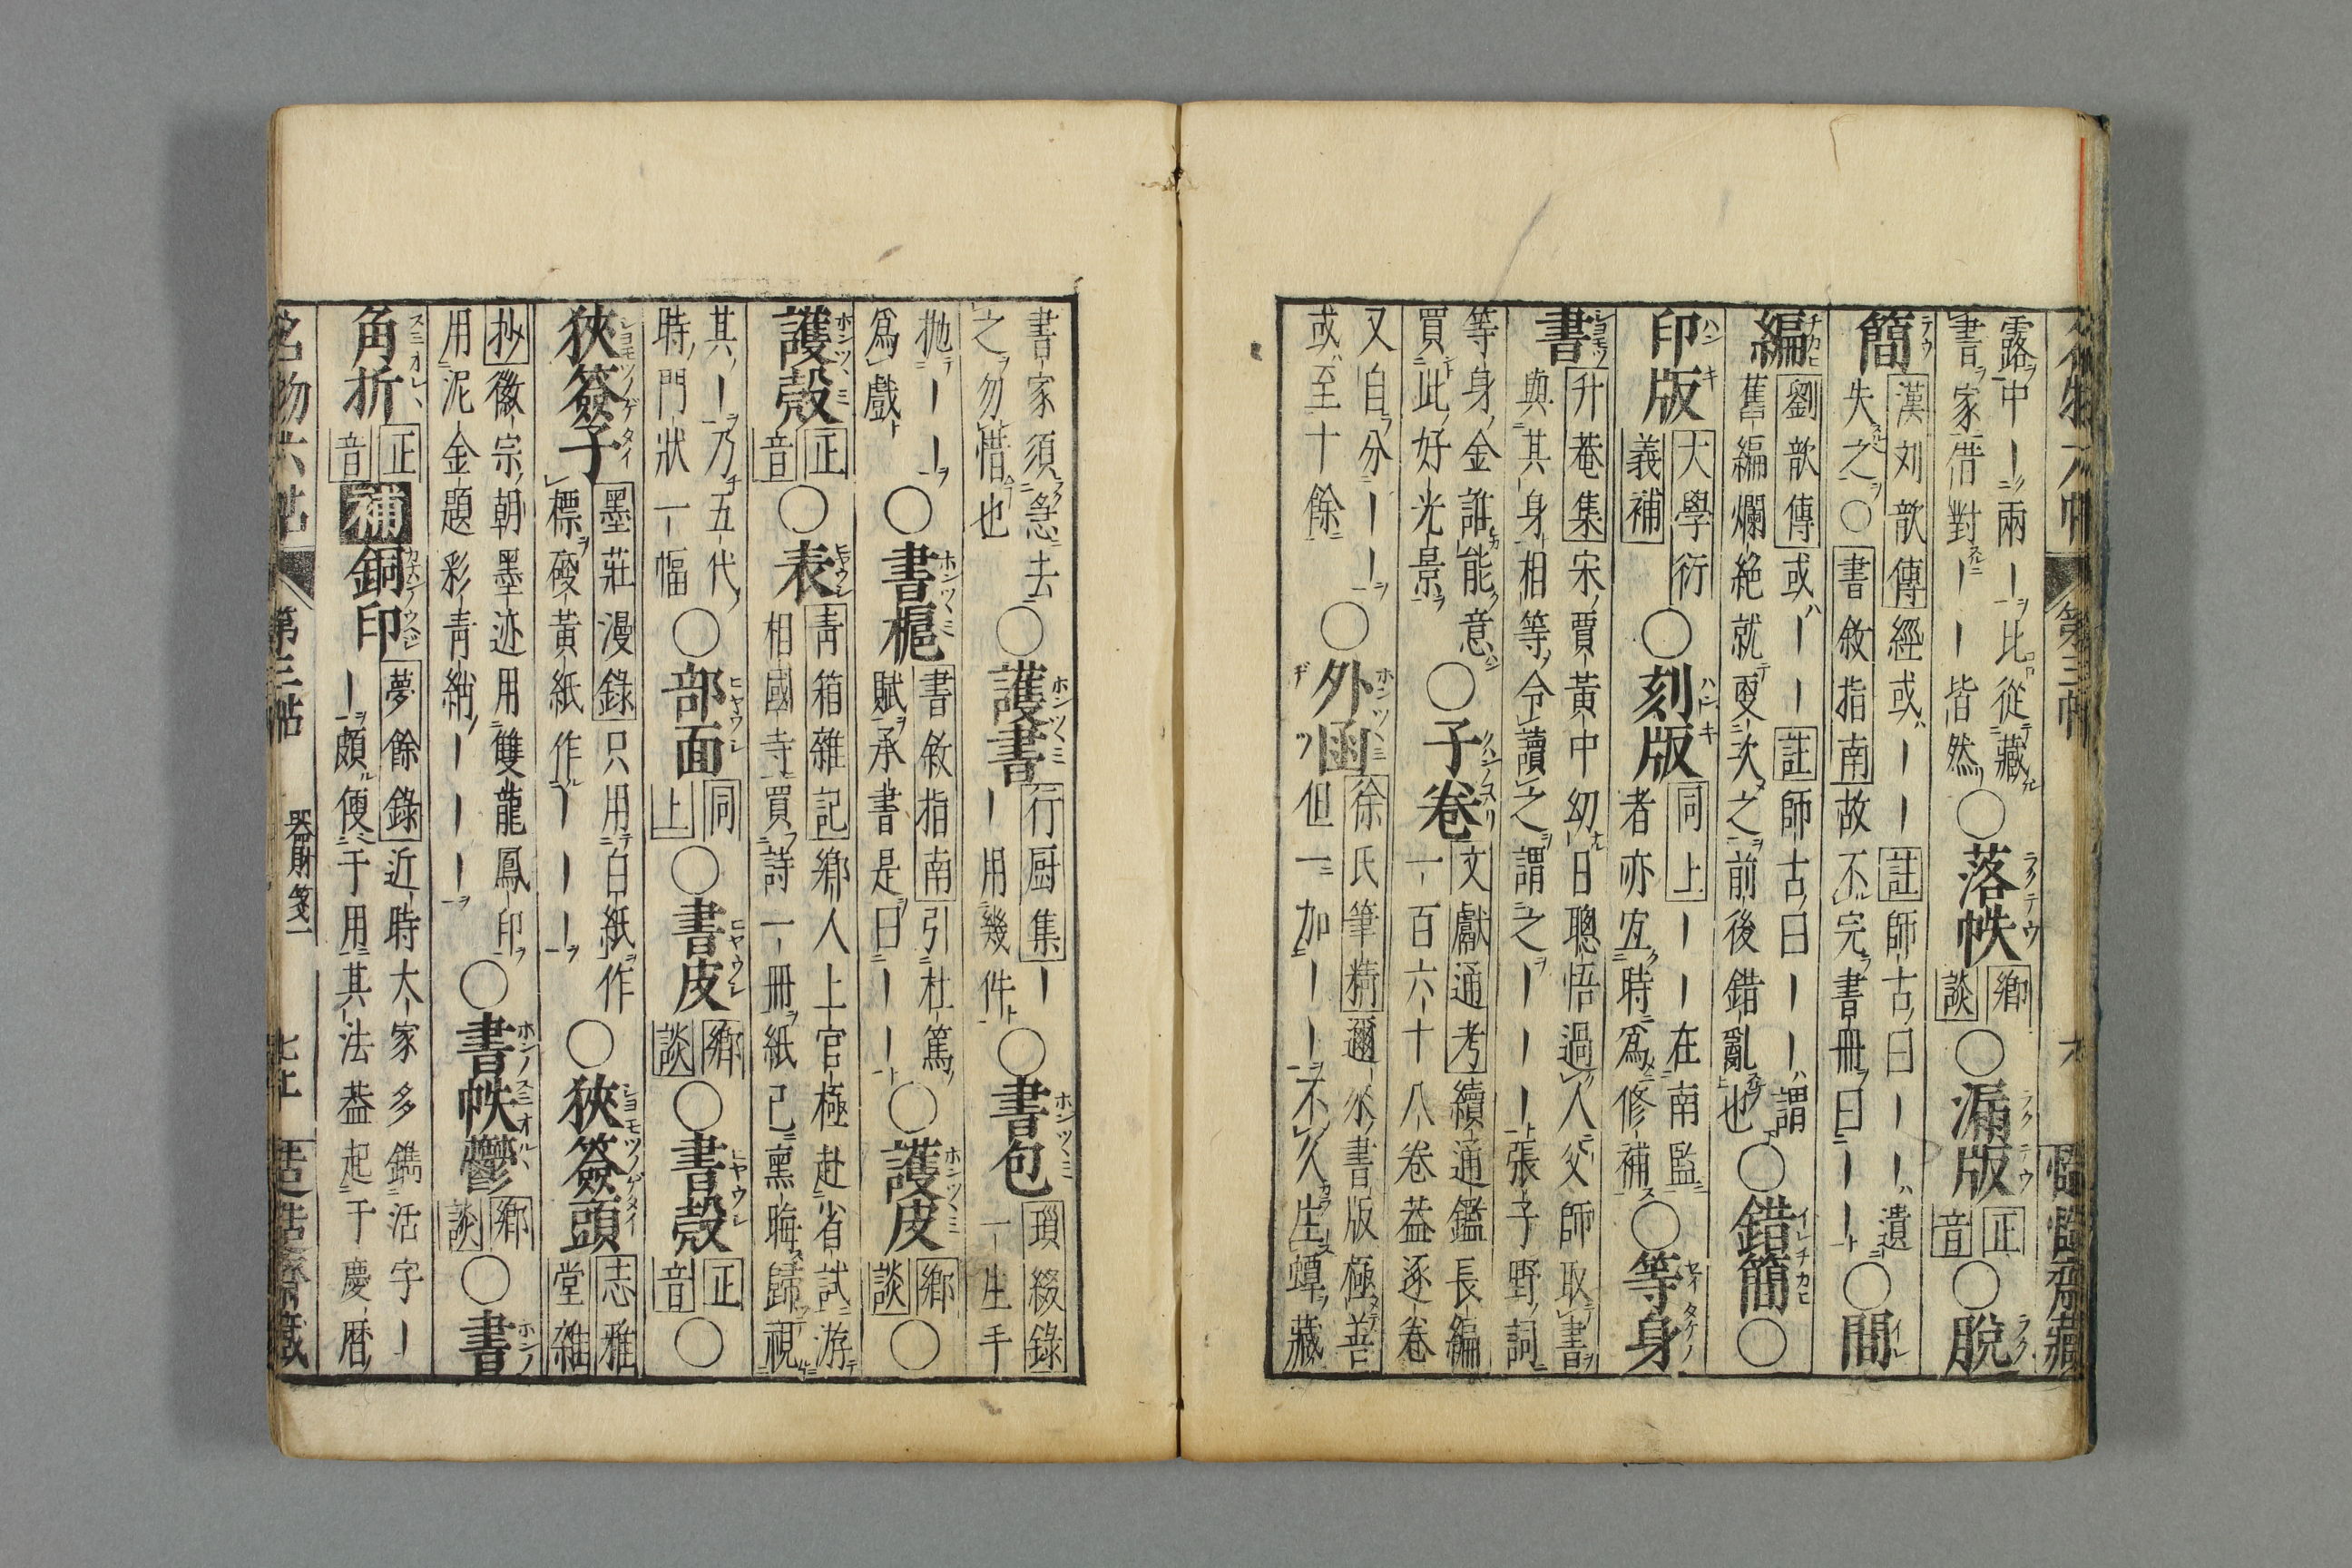 露中｜兩｜比從藏
書家借對｜｜皆然
○落帙 鄉談
○漏版 正音
○脫
簡 漢刘歆傳 經或｜｜ 註 師古曰｜｜遺
失之○ 書敘指南 故不完書冊曰｜｜
○間
編 劉歆傳 或｜｜ 註 師古曰｜｜謂
舊編爛絶就更次之前後錯亂也
○錯簡○
印版 大學衍義補
○刻版 同上 ｜｜在南監
者亦宜時為修補
○等身
書 升菴集 宋賈黃中幼日聰悟過人父師取書
與其身相等令讀之謂之｜｜｜張子野詞
等身金誰能意
買此好光景
○子卷 文獻通考 續通鑑長編
一百六十八卷葢逐卷
又自分｜｜
或至十餘
○外函 徐氏筆精 邇來書版極善
但一加｜｜不久生蟫藏
書家須急去
之勿惜也
○護書 行厨集 ｜
｜用幾件
○書包 瑣綴錄
一生手
拋｜｜
為戲
○書槴 書敘指南 引杜篤
賦承書是曰｜｜
○護皮 鄉談
○
護殼 正音
○表 青箱雜記 鄉人上官極赴省試游
相國寺買詩一冊紙已熏晦歸視
其｜乃五代
時門狀一幅
○部面 同上
○書皮 鄉談
○書殼 正音
○
狹簽子 墨莊漫錄 只用白紙作
標硾黃紙作｜｜｜
○狹簽頭 志雅堂雜
抄 徽宗朝墨迹用雙龍鳳印
用泥金題彩青綃｜｜｜
○書帙鬱 鄉談
○書
角折 正音
補 銅印 夢餘錄 近時大家多鐫活字｜
｜頗便于用其法葢起于慶曆
名物六帖 第三帖 器財箋一